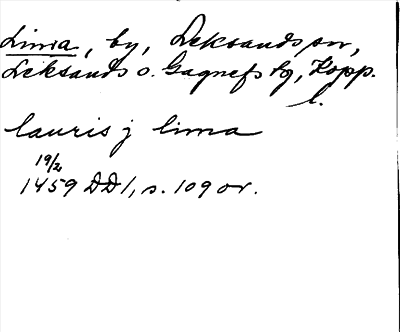 Lima, by, Leksands sn,
Leksands o. Gagnefs tg, Kopp.
l.
lauris j lima
19/2
1459 DD 1, s. 109 or.